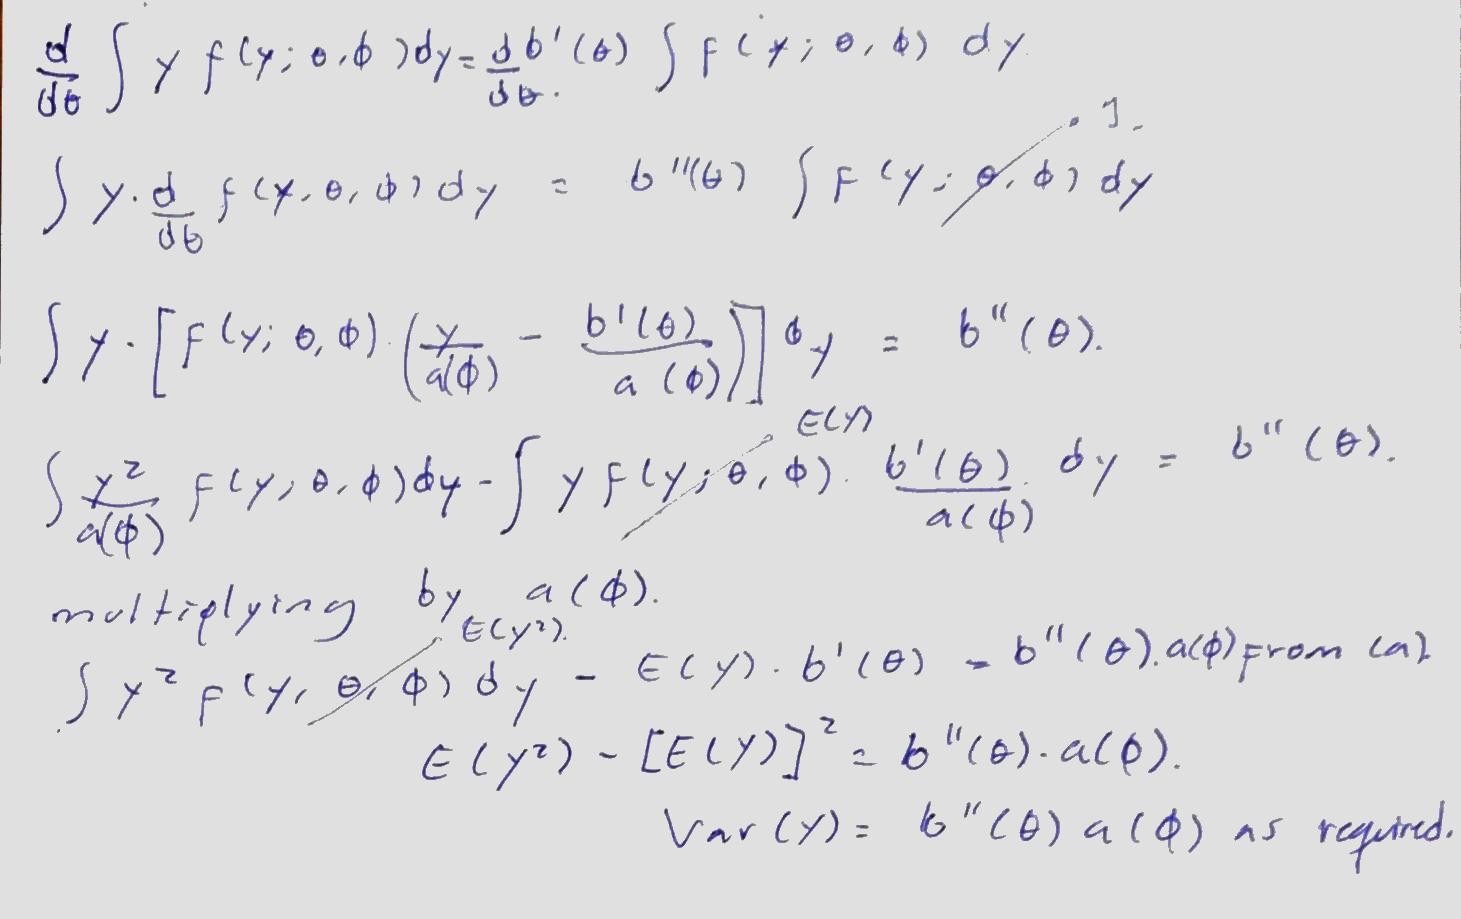 d/dθ ∫ y f(y; θ, ϕ) dy = d/dθ. b'(θ) ∫ f(y; θ, ϕ) dy
1.
∫ y. d/dθ f(y, θ, ϕ) dy = b''(θ) ∫ f(y; θ, ϕ) dy
∫ y. [f(y; θ, ϕ). (y/a(ϕ) - b'(θ)/a(ϕ))] dy = b''(θ).
E(Y)
∫ y²/a(ϕ) f(y, θ, ϕ) dy - ∫ y f(y; θ, ϕ). b'(θ)/a(ϕ). dy = b''(θ).
multiplying by a(ϕ).
E(y²).
∫ y² f(y, θ, ϕ) dy - E(y). b'(θ) = b''(θ). a(ϕ) from (a)
E(y²) - [E(Y)]² = b''(θ). a(ϕ).
Var(Y) = b''(θ) a(ϕ) as required.